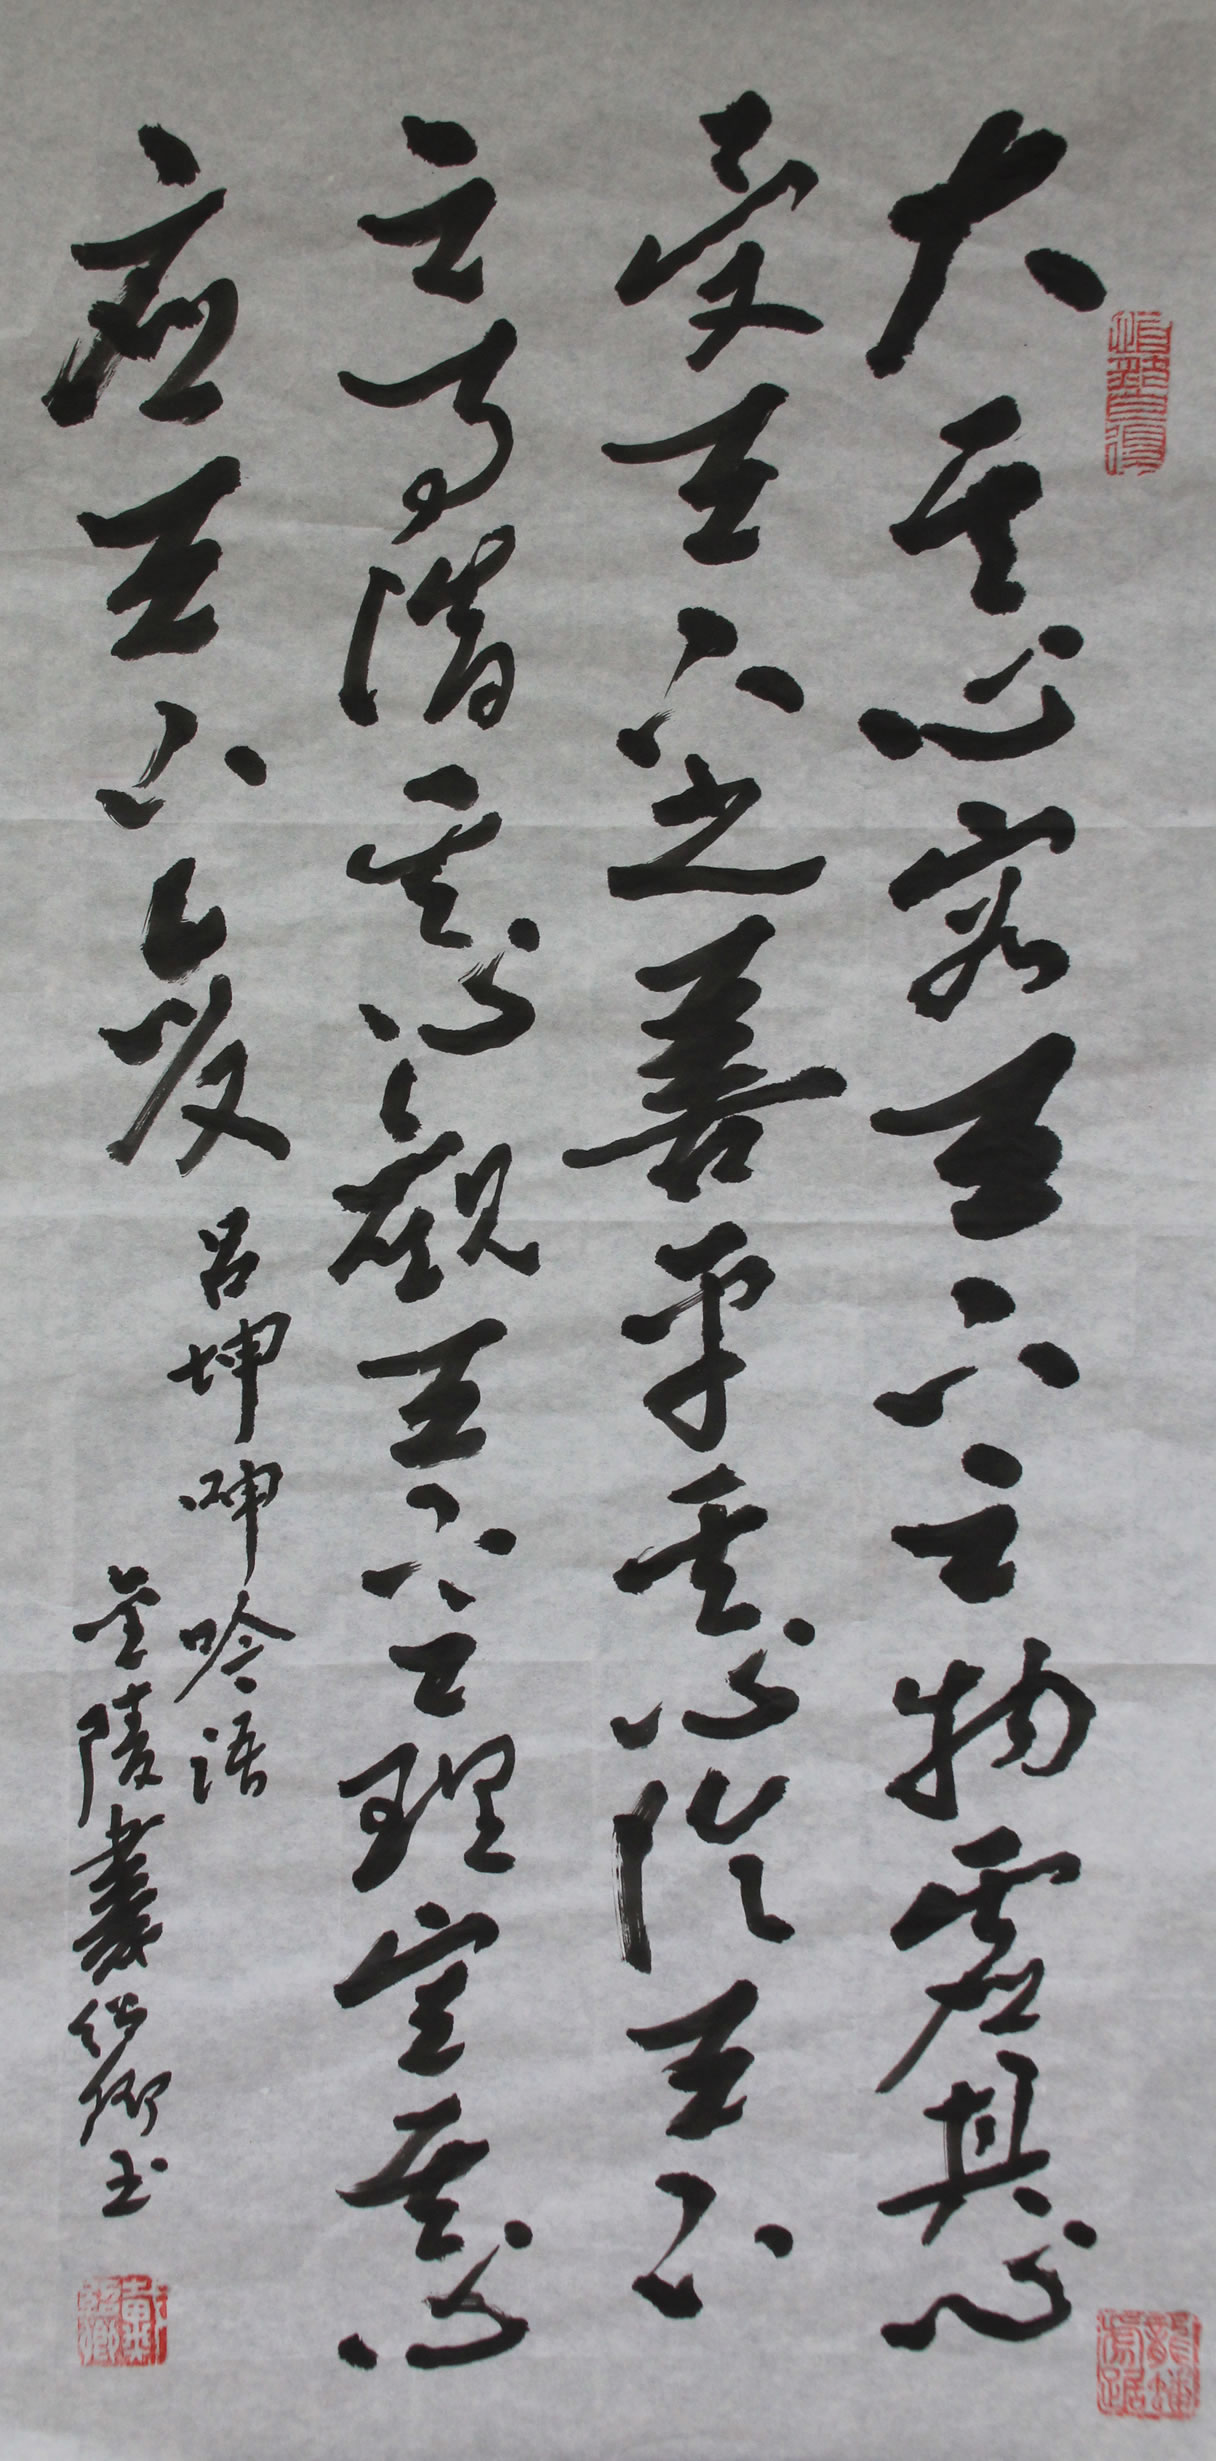 大其心容天下之物虚其心
受天下之善平其心论天下
之事潜其心觀天下之理定其心
应天下之变 吕坤呻吟语
金陵戴绍卿书
戴紹卿
龍蟠虎踞